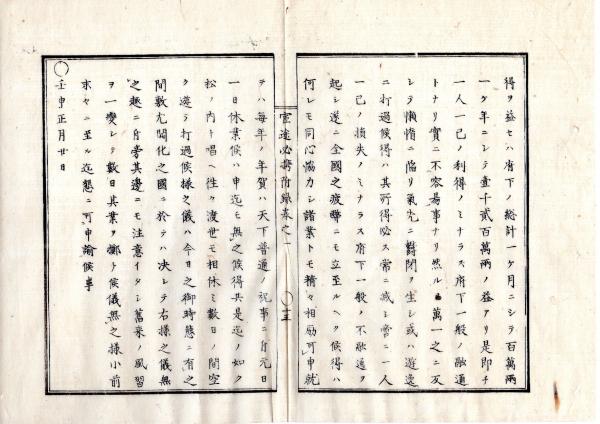 得ヲ益セハ府下ノ総計一ケ月ニシテ百萬兩
一ケ年ニシテ壹千貳百萬兩ノ益アリ是即チ
一人一己ノ利得ノミナラス府下一般ノ融通
トナリ實ニ不容易事ナリ然ルニ萬一之ニ反
シテ懶惰ニ陥リ氣先ニ欝閉ヲ生シ或ハ遊逸
ニ打過候得ハ其所得必ス常ニ減シ啻ニ一人
一己ノ損失ノミナラス府下一般ノ不融通ヲ
起シ遂ニ全國之疲弊ニモ立至ルヘク候得ハ
何レモ同心協力シ諸業トモ精々相励可申就
官途必携附錄卷之一 〇十三
テハ毎年ノ年賀ハ天下普通ノ祝事ニ付元日
一日休業候ハ申迄モ無之候得共是迄ノ如ク
松ノ内ト唱ヘ徃々渡世モ相休ミ數日ノ間空
ク遊ラ打過候様之儀ハ今日之御時態ニ有之
間敷尤開化之國ニ於テハ決シテ右様之儀無
之趣ニ付旁其邊ニモ注意イタシ舊来ノ風習
ヲ一變シテ數日其業ヲ擲ト候儀無之様小前
末々ニ至ル迄懇ニ可申諭候事
〇壬申正月廿日